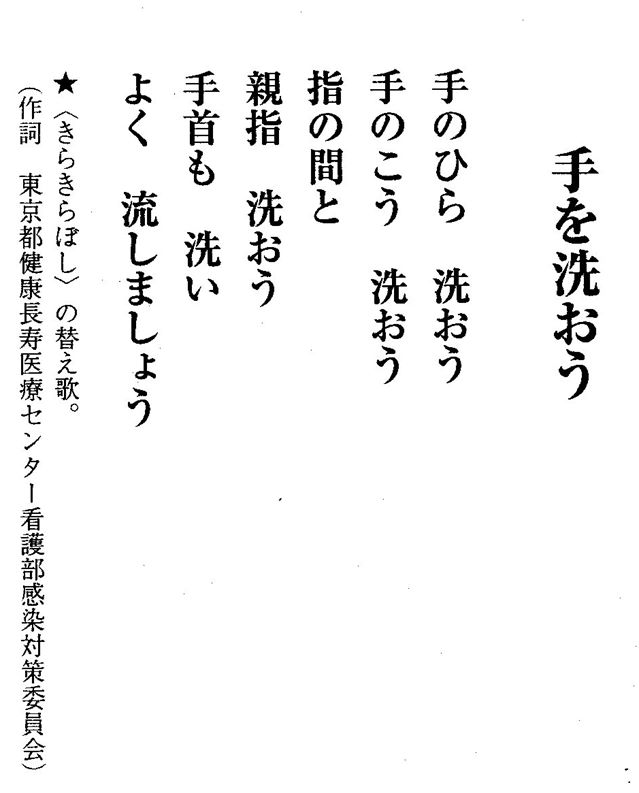 手を洗おう
手のひら　洗おう
手のこう　洗おう
指の間と
親指　洗おう
手首も　洗い
よく　流しましょう
★〈きらきらぼし〉の替え歌。
（作詞　東京都健康長寿医療センター看護部感染対策委員会）